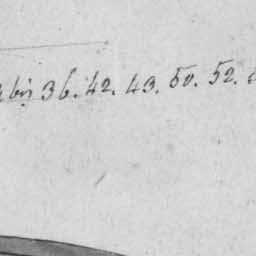 bis 36. 42. 43. 50. 52.